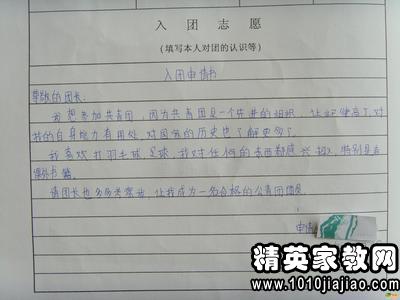 入团志愿
(填写本人对团的认识等)
入团申请书
尊敬的团长:
我想参加共青团,因为共青团是一个先进的组织,让
我的自身能力有用处,对国家的历史也了解更多了.
我喜欢打羽毛球,足球,我对任何的东西都感兴趣,特别是看
课外书籍.
请团长也多多考察我,让我成为一名合格的公青团团员
申请
精英家教网
www.1010jiajiao.com